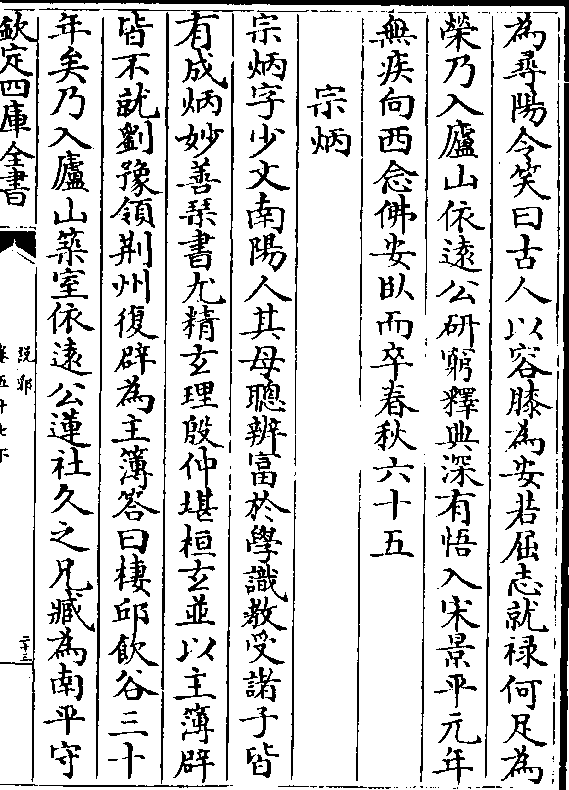 為尋陽令笑曰古人以容膝為安若屈志就禄何足為
榮乃入廬山依遠公研窮釋典深有悟入宋景平元年
無疾向西念佛安卧而卒春秋六十五
宗炳
宗炳字少文南陽人其母聰辨富於學識教受諸子皆
有成炳妙善琴書尤精玄理殷仲堪桓玄並以主簿辟
皆不就劉豫領荆州復辟為主簿答曰棲邱飲谷三十
年矣乃入廬山築室依遠公蓮社久之兄臧為南平守
欽定四庫全書
說郛
卷五十七下
二十三